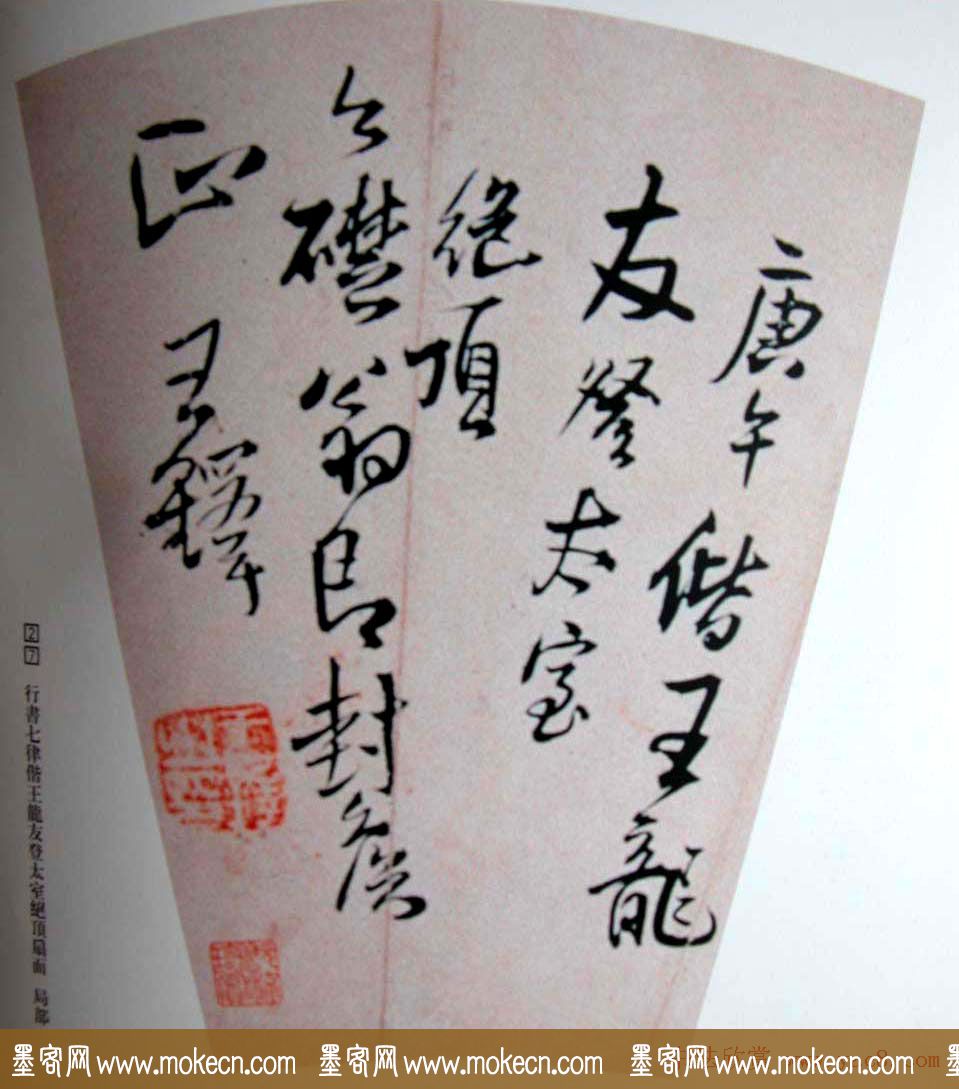 庚午偕王龍
友登太室
絕頂
礎翁良封
正 王鐸
27 行書七律偕王龍友登太室絕頂扇面 局部
墨客网 www.mokecn.com 墨客网 www.mokecn.com 墨客网 www.mokecn.com 墨